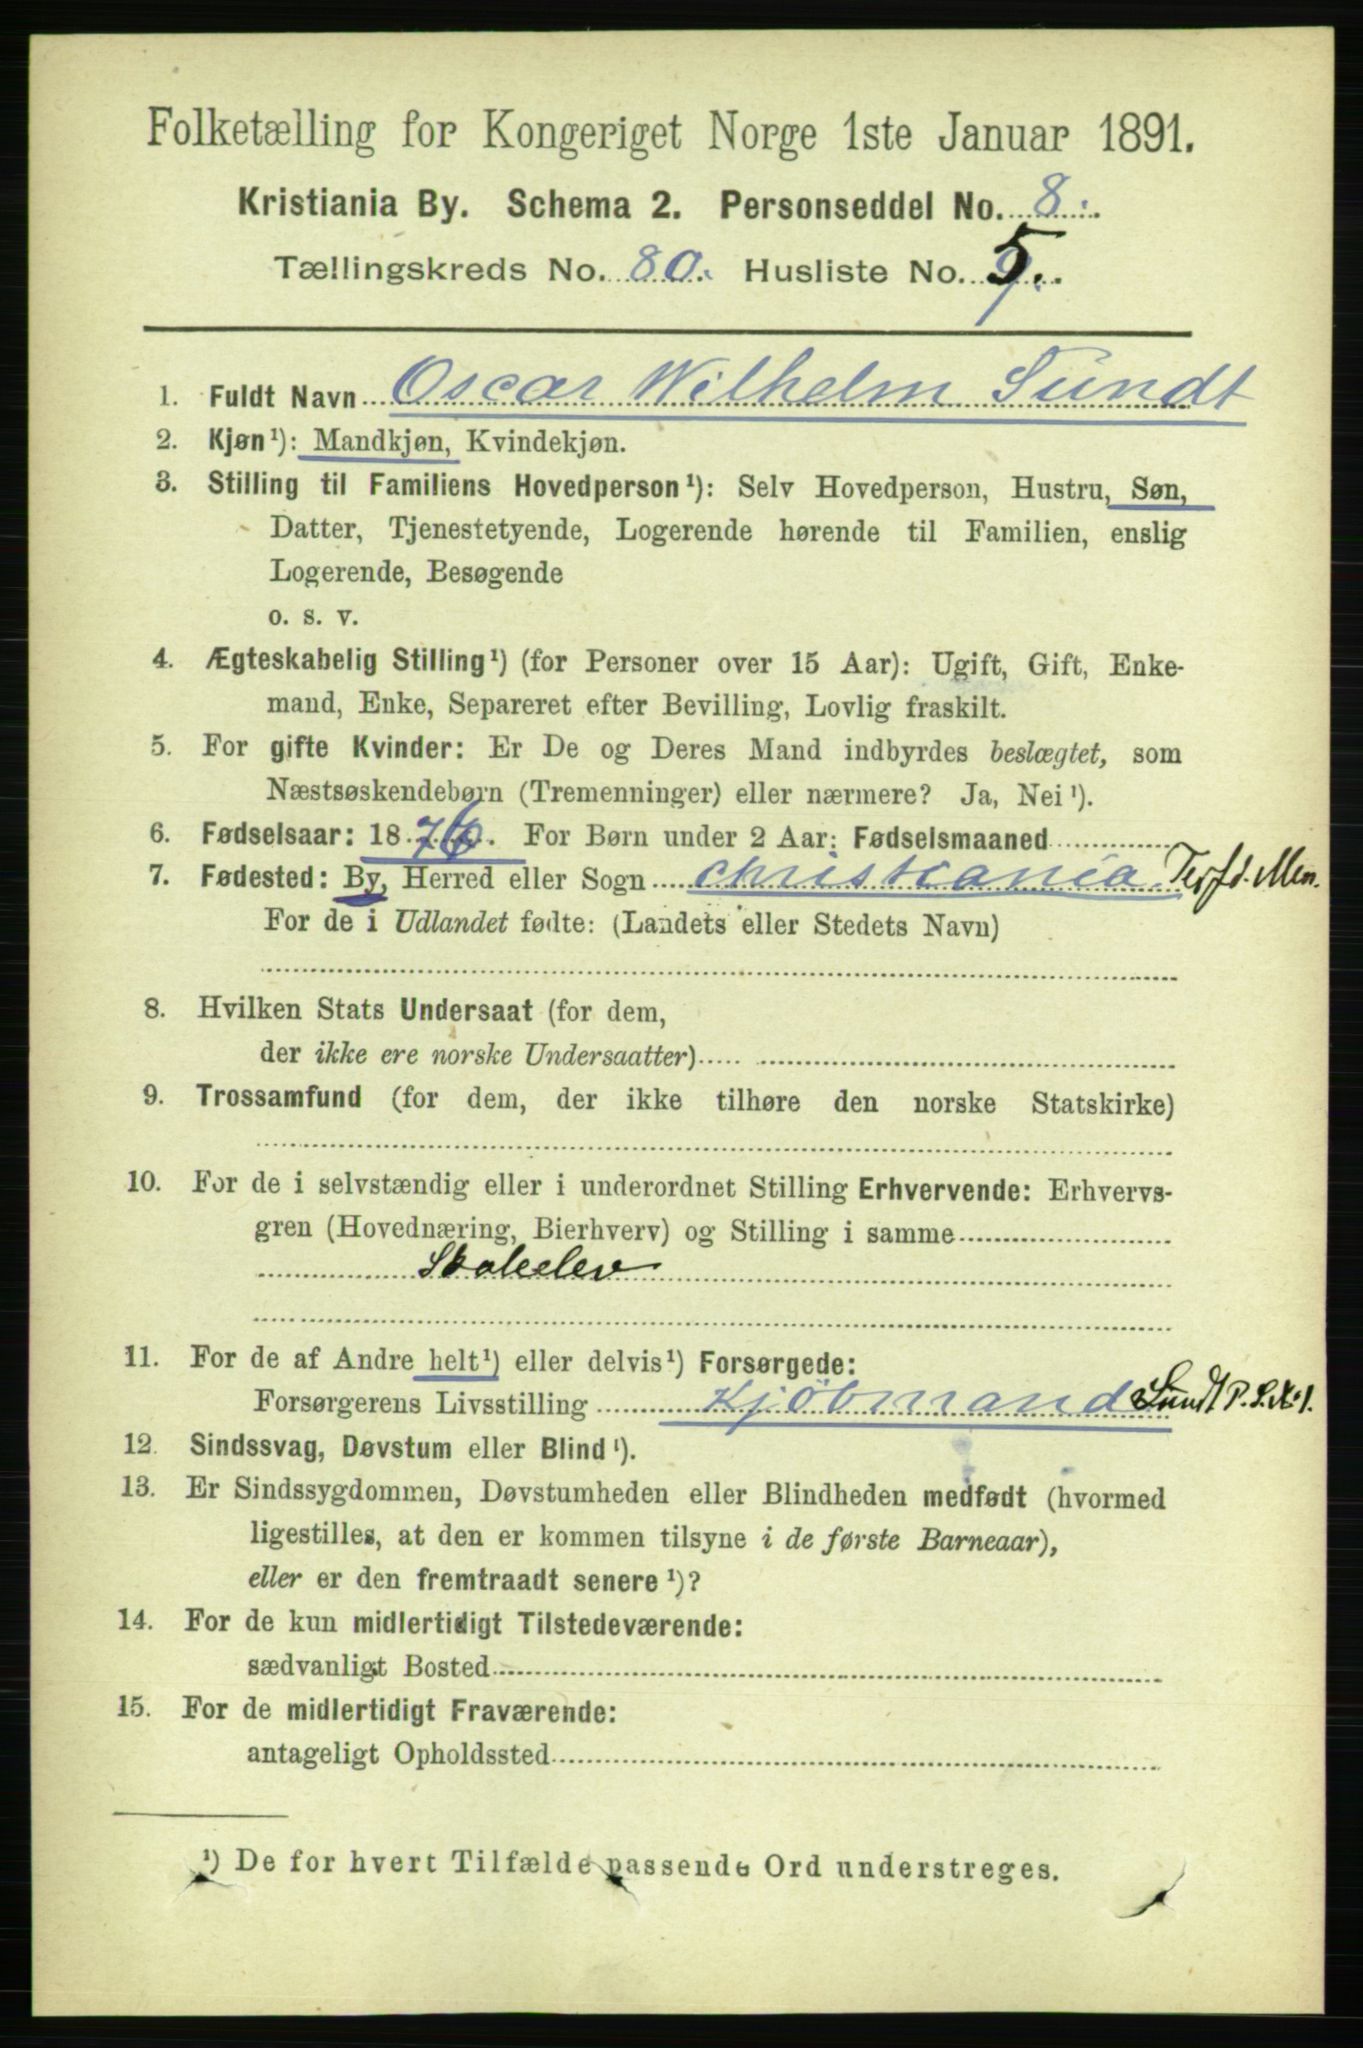 Folketælling for Kongeriget Norge 1ste Januar 1891.
Kristiania By. Schema 2. Personseddel No. 8.
Tællingskreds No. 80. Husliste No. 5.
1. Fuldt Navn Oscar Wilhelm Sundt
2. Kjøn¹): Mandkjøn, Kvindekjøn.
3. Stilling til Familiens Hovedperson¹): Selv Hovedperson, Hustru, Søn,
Datter, Tjenestetyende, Logerende hørende til Familien, enslig
Logerende, Besøgende
o. s. v.
4. Ægteskabelig Stilling¹) (for Personer over 15 Aar): Ugift, Gift, Enke-
mand, Enke, Separeret efter Bevilling, Lovlig fraskilt.
5. For gifte Kvinder: Er De og Deres Mand indbyrdes beslægtet, som
Næstsøskendebørn (Tremenninger) eller nærmere? Ja, Nei¹).
6. Fødselsaar: 1876. For Børn under 2 Aar: Fødselsmaaned
7. Fødested: By, Herred eller Sogn Christiania
For de i Udlandet fødte: (Landets eller Stedets Navn)
8. Hvilken Stats Undersaat (for dem,
der ikke ere norske Undersaatter)
9. Trossamfund (for dem, der ikke tilhøre den norske Statskirke)
10. For de i selvstændig eller i underordnet Stilling Erhvervende: Erhvervs-
gren (Hovednæring, Bierhverv) og Stilling i samme
Skoleelev
11. For de af Andre helt¹) eller delvis¹) Forsørgede:
Forsørgerens Livsstilling Kjöbmand Sundt P.S.No1.
12. Sindssvag, Døvstum eller Blind¹).
13. Er Sindssygdommen, Døvstumheden eller Blindheden medfødt (hvormed
ligestilles, at den er kommen tilsyne i de første Barneaar),
eller er den fremtraadt senere¹)?
14. For de kun midlertidigt Tilstedeværende:
sædvanligt Bosted
15. For de midlertidigt Fraværende:
antageligt Opholdssted
¹) De for hvert Tilfælde passende Ord understreges.